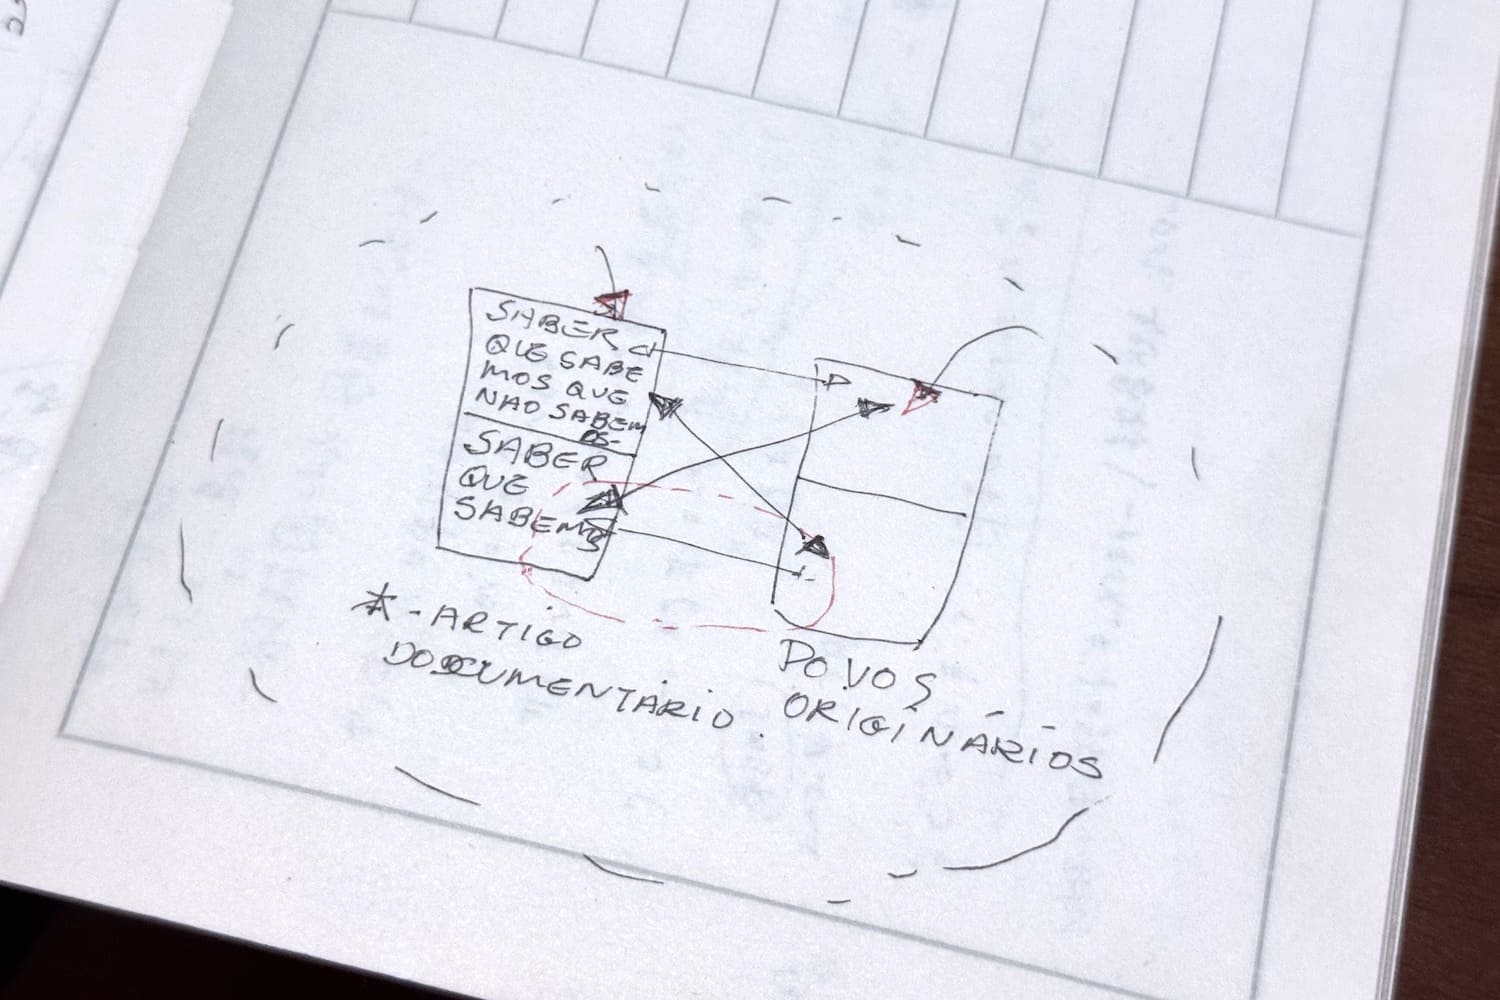 SABER
QUE SABE
MOS QUE
NÃO SABEM
OS-
SABER
QUE
SABEMOS
* - ARTIGO
DOCUMENTÁRIO.
POVOS
ORIGINÁRIOS